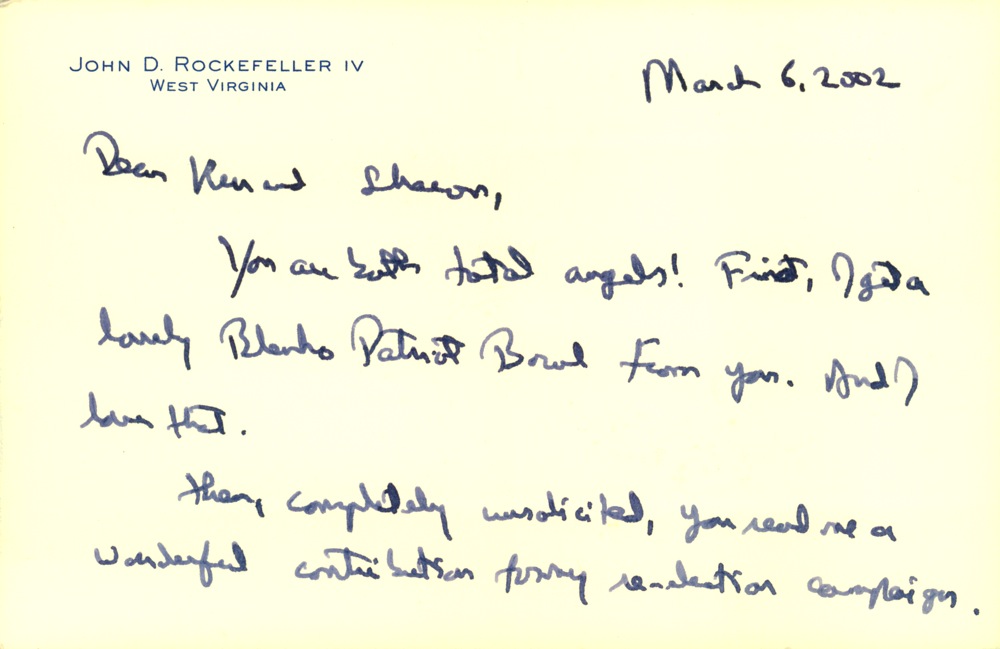 JOHN D. ROCKEFELLER IV
WEST VIRGINIA
March 6, 2002
Dear Ken and Sharon,
You are both total angels! First, I get a
lovely Blenko Patriot Bowl from you. And I
love that.
Then, completely unsolicited, you send me a
wonderful contribution for my re-election campaign.